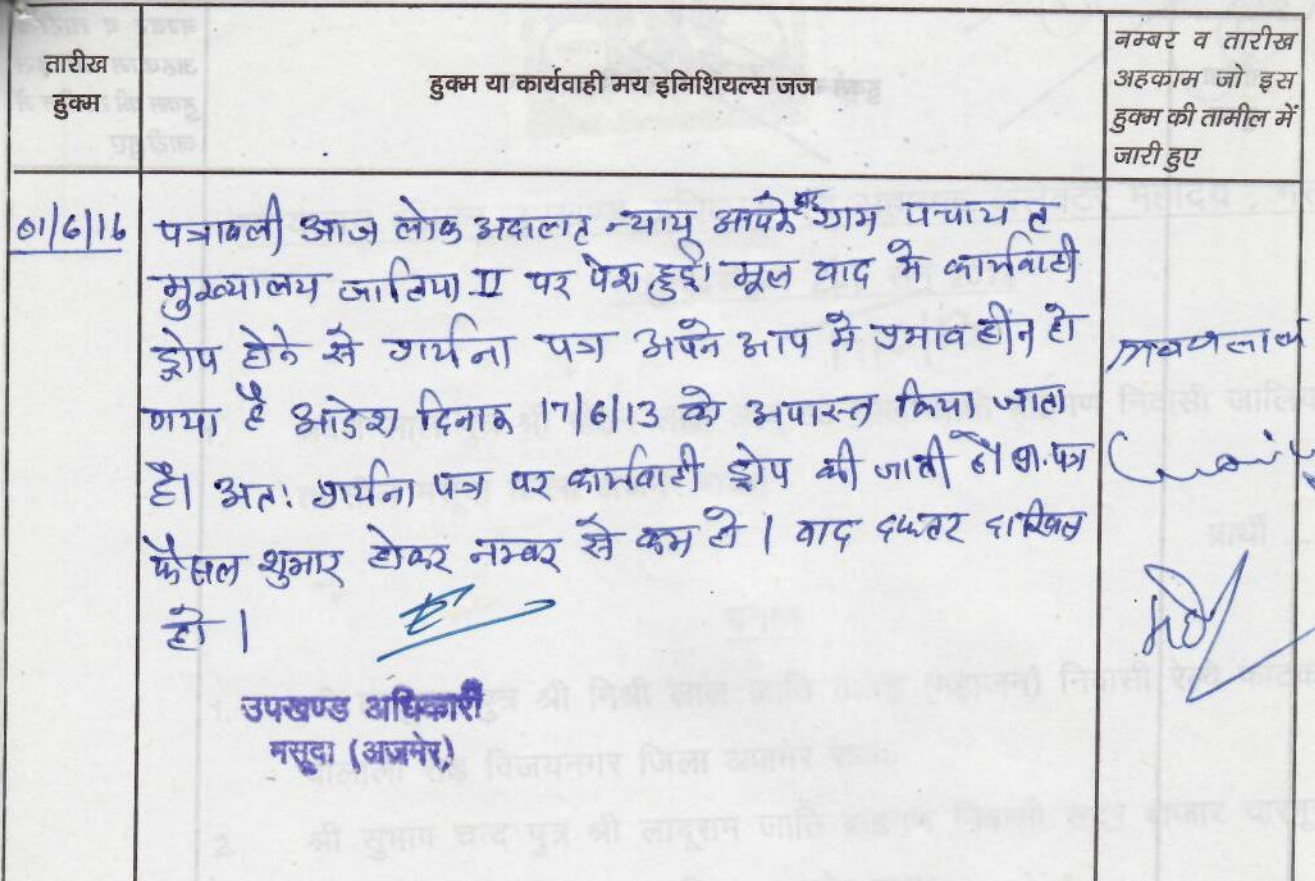 तारीख
हुक्म
हुक्म या कार्यवाही मय इनिशियल्स जज
नम्बर व तारीख
अहकाम जो इस
हुक्म की तामील में
जारी हुए
01/6/16
पत्रावली आज लोक अदालत न्याय आपके द्वार ग्राम पंचायत
मुख्यालय जालिया II पर पेश हुई। मूल वाद मे कार्यवाही
ड्रोप होने से प्रार्थना पत्र अपने आप मे प्रभाव हीन हो
गया है आदेश दिनांक 17/6/13 को अपास्त किया जाता
है। अतः प्रार्थना पत्र पर कार्यवाही ड्रोप की जाती है। प्रा. पत्र
फैसल शुमार होकर नम्बर से कम हो। वाद दफ्तर दाखिल
हो।
उपखण्ड अधिकारी
मसूदा (अजमेर)